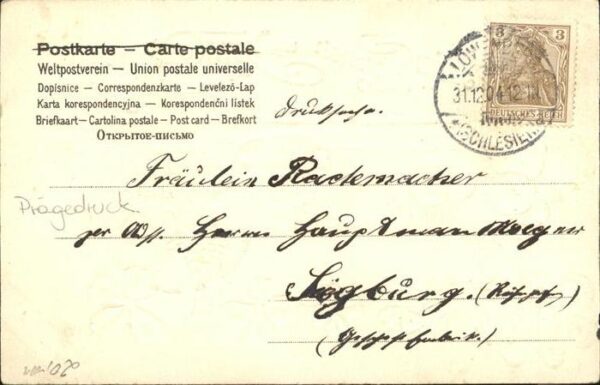 Postkarte – Carte postale
Weltpostverein – Union postale universelle
Dopisnice – Correspondenzkarte – Levelező-Lap
Karta korespondencyjna – Korespondenční lístek
Briefkaart – Cartolina postale – Post card – Brefkort
Открытое-письмо
3 3
DEUTSCHES REICH
31.12.04.12-1N.
(SCHLESIEN)
Drucksache.
Fräulein Rademacher
Prägedruck
per Adr. Herrn Hauptmann
Siegburg.